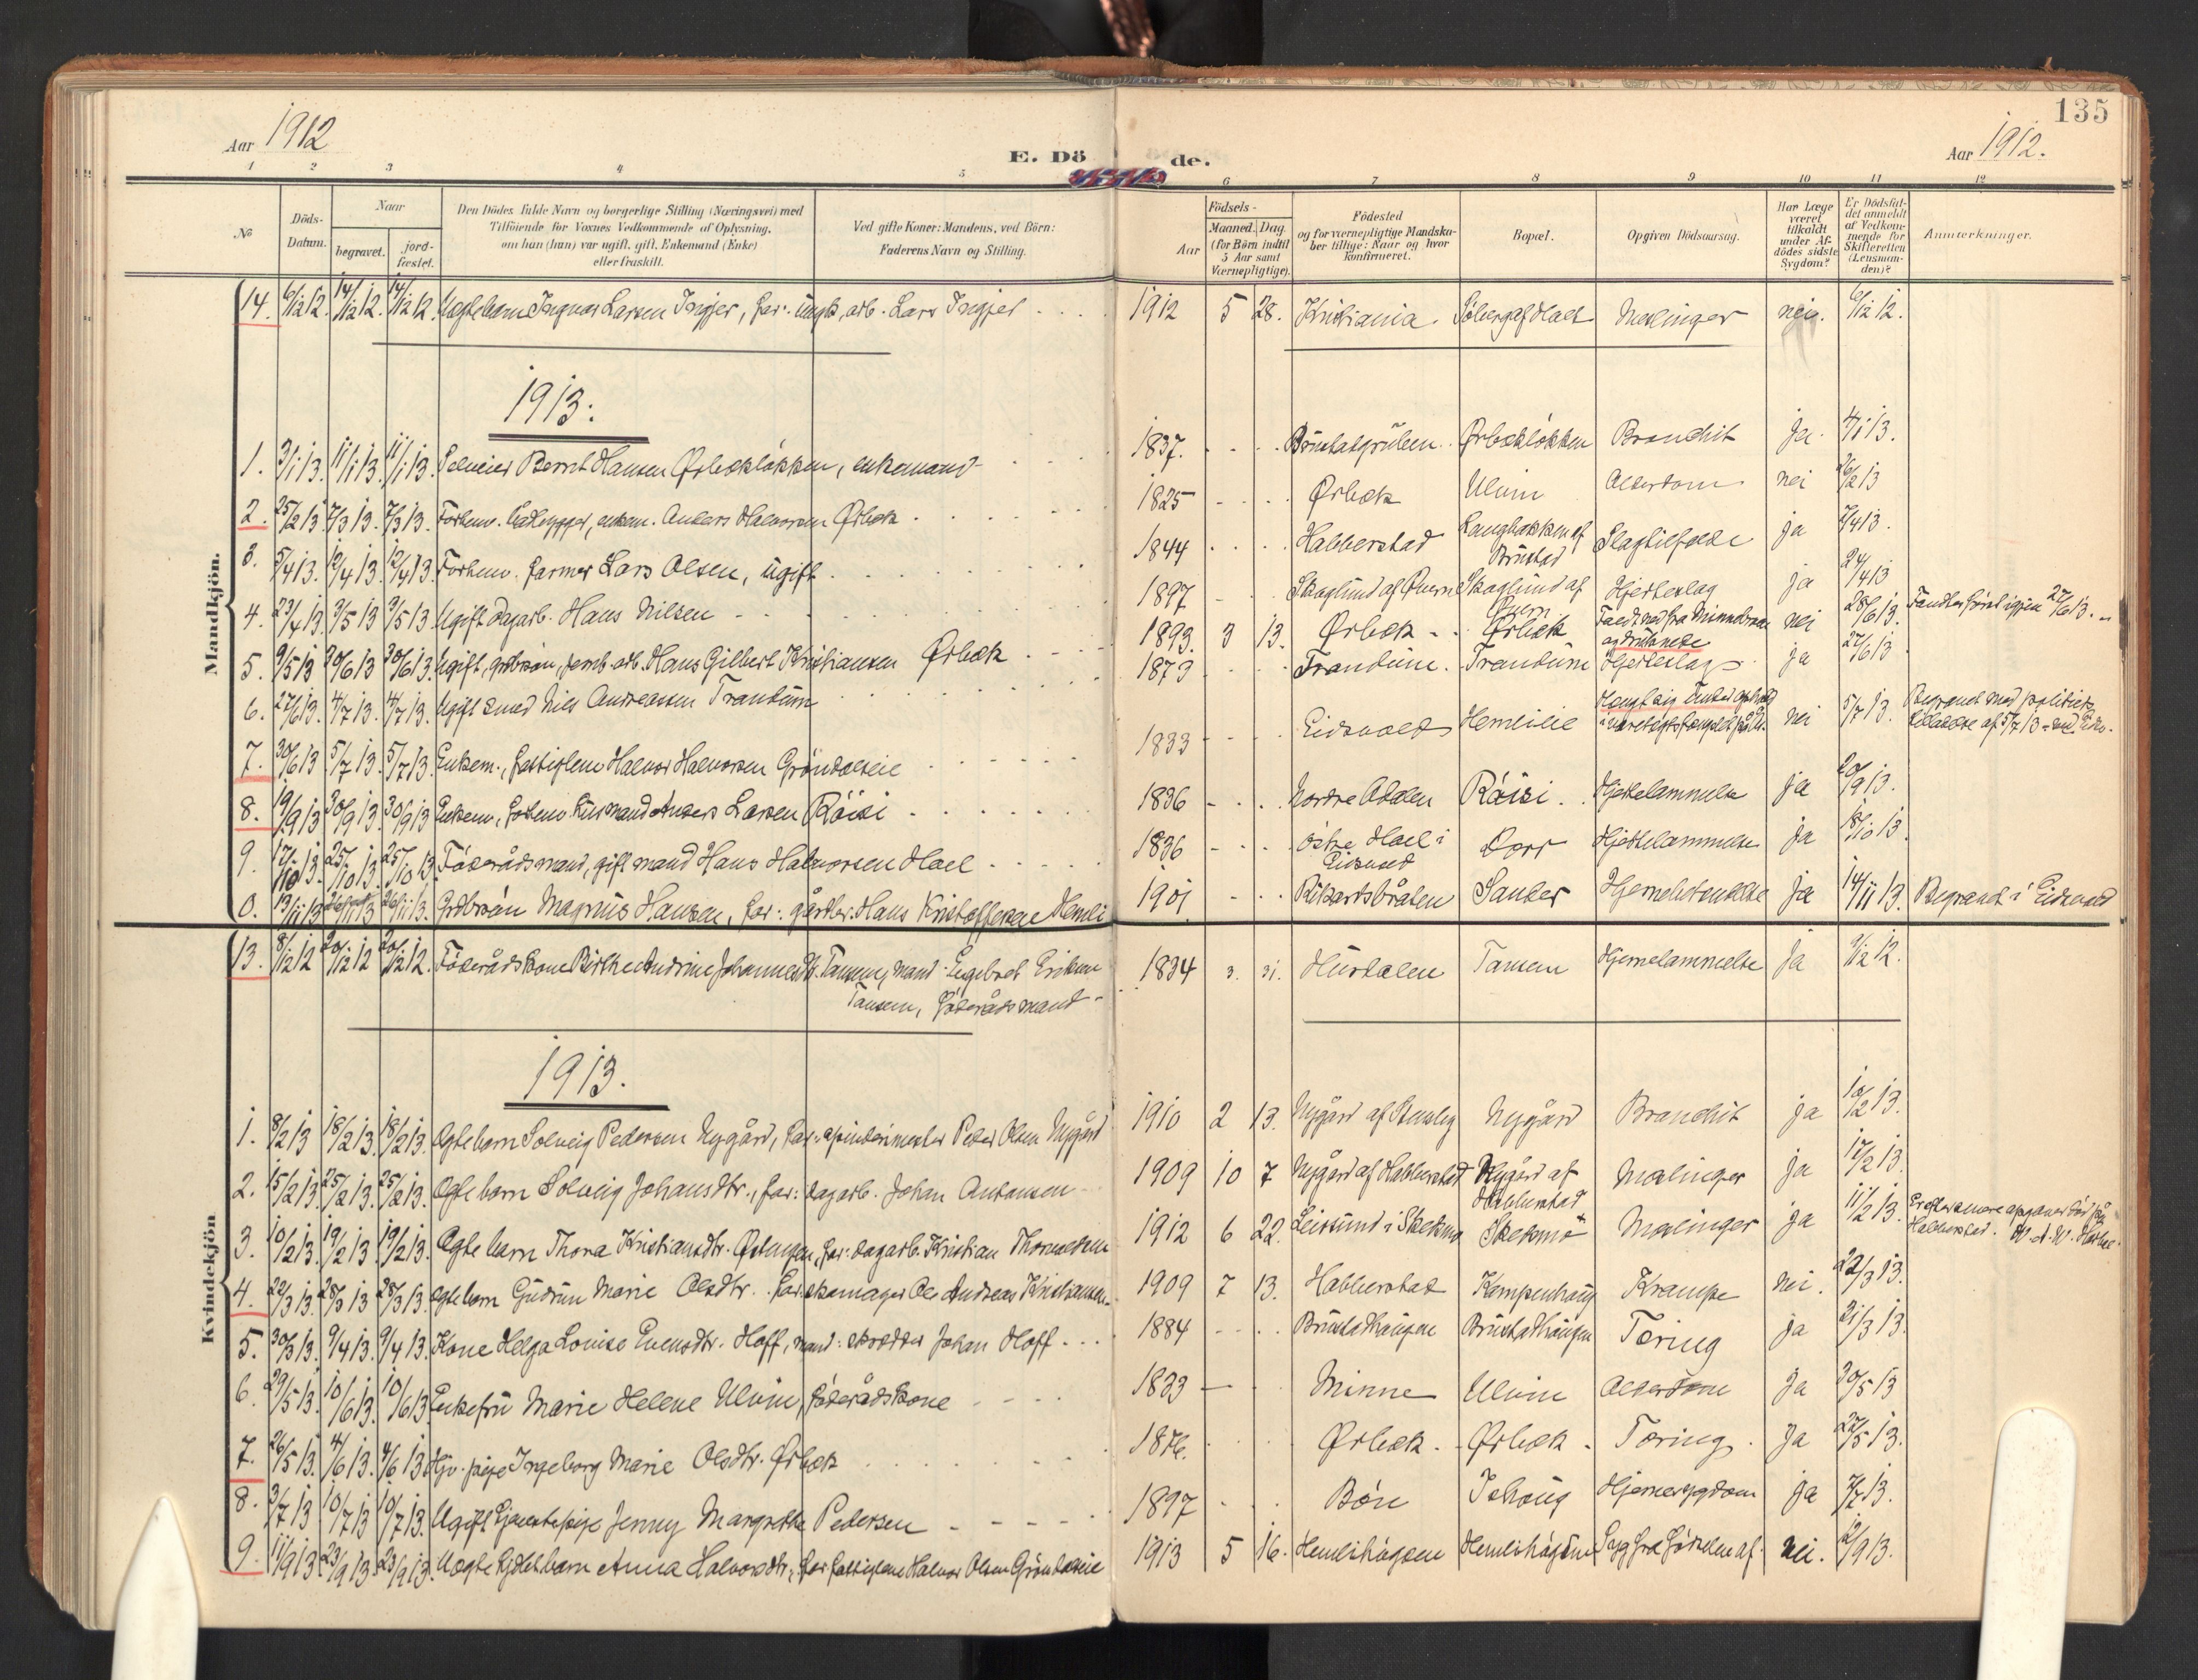 135
Aar 1912
E. Döde.
Aar 1912.
1 2 3 4 5 6 7 8 9 10 11 12
No
Döds-Datum.
Naar
begravet.
jord-fæstet.
Den Dödes fulde Navn og borgerlige Stilling (Næringsvei) med
Tilföiende for Voxnes Vedkommende af Oplysning,
om han (hun) var ugift, gift, Enkemand (Enke)
eller fraskilt.
Ved gifte Koner: Mandens, ved Börn:
Faderens Navn og Stilling.
Födsels-
Aar
Maaned. Dag.
(for Börn indtil
5 Aar samt
Værnepligtige).
Födested
og for værnepligtige Mandska-
ber tillige: Naar og hvor
konfirmeret.
Bopæl.
Opgiven Dödsaarsag.
Har Læge
været
tilkaldt
under Af-
dödes sidste
Sygdom?
Er Dödsfal-
det anmeldt
af Vedkom-
mende for
Skifteretten
(Lensman-
den)?
Anmærkninger.
Mandkjön.
14. 6/12 12. 14/12 12. 14/12 12. Uægte barn Ingvar Larsen Ingjer, far: ungk., arb. Lars Ingjer 1912 5 28. Kristiania. Meslinger nei. 6/12 12.
1913.
1. 3/1 13. 11/1 13. 11/1 13. Selveier Bernt Hansen Ørbækløkken, enkemand 1837. Brustadgruben. Ørbækløkken Bronchit ja. 4/1 13.
2. 25/2 13. 7/3 13. 7/3 13. Forhenv. enkem. Anders Halvorsen Ørbæk 1825 Ørbæk Ulvin Alderdom nei 26/2 13
3. 5/4 13. 12/4 13. 12/4 13. Forhenv. farmer Lars Olsen, ugift 1844 Habberstad Langbakken af Brustad Slagtilfælde ja 7/4 13.
4. 23/4 13. 3/5 13 3/5 13 Ugift dagarb. Hans Nilsen 1897 Skoglund af Qvern Skoglund af Qvern Hjerteslag ja 24/4 13
5. 9/5 13 30/6 13 30/6 13. Ugift, grdbrsøn, jernb. arb. Hans Gilbert Kristiansen Ørbæk 1893. 3 13. Ørbæk Ørbæk Faldt ned fra Minnebroen og druknede nei 28/6 13. Fandtes først igjen 27/6 13.
6. 27/6 13. 4/7 13. 4/7 13. Ugift smed Nils Andreassen Trandum 1873 Trandum. Trandum Hjerteslag ja 27/6 13
7. 30/6 13 5/7 13. 5/7 13. Enkem., fattiglem Halvor Halvorsen Grøndalseie 1833 Eidsvold Hemlieie Hængt sig under ophold i nei 5/7 13. Begravet med politiets tilladelse af 5/7 13
8. 19/9 13 30/9 13. 30/9 13 Enkem., forhenv. husmand Anders Larsen Röisi 1836 Nordre Odalen Röisi. Hjertelammelse ja 20/9 13.
9. 17/10 13. 25/10 13. 25/10 13. Föderådsmand, gift mand Hans Halvorsen Hoel 1836 östre Hoel i Eidsvold Dorr Hjertelammelse ja 18/10 13.
0. 13/11 13 26/11 13 26/11 13. Grdbrsøn Magnus Hansen, far: gårdbr. Hans Kristoffersen Hemli 1901 Rikardsbråten Sander Hjernebetændelse ja 14/11 13. Begravet i Eidsvold
Kvindekjön
13. 8/12 12 20/12 12 20/12 12. Föderådskone Birthe Andrine Johannesdtr. Tansem, mand: Engebret Eriksen
Tansem, föderådsmand
1834 3. 31. Hurdalen Tansem Hjernelammelse ja 9/12 12.
1913.
1. 8/2 13 18/2 13. 18/2 13. Ægte barn Solveig Pedersen Nygård, far: spinderimester Peder Olsen Nygård 1910 2 13. Nygård af Nygård Bronchit ja 10/2 13.
2. 15/2 13. 25/2 13. 25/2 13. Ægte barn Solveig Johansdtr., far: dagarb. Johan Antonsen 1909 10 7 Nygård af Habberstad Nygård af Habberstad Meslinger ja 17/2 13.
3. 10/2 13. 19/2 13. 19/2 13. Ægte barn Thora Kristiansdtr. far: dagarb. Kristian 1912 6 22. i Skedsmo Skedsmo Meslinger ja 11/2 13. Er efter senere død på Habberstad.
4. 22/3 13. 28/3 13 28/3 13. Ægte barn Gudrun Marie Olsdtr. far: skomager Ole Andreas Kristiansen 1909 7 13. Habberstad Kampenhaug Krampe nei. 22/3 13.
5. 30/3 13. 9/4 13. 9/4 13. Kone Helga Louise Evensdtr. Hoff, mand: skrædder Johan Hoff 1884 Brustadhaugen Brustadhaugen Tæring ja 31/3 13.
6. 29/5 13. 10/6 13. 10/6 13 Enkefru Marie Helene Ulvin, föderådskone 1833 Minne Ulvin Alderdom ja 30/5 13
7. 26/5 13. 4/6 13. 4/6 13 Hjv. pige Ingeborg Marie Olsdtr. Ørbæk 1876. Ørbæk. Ørbæk. Tæring. ja 27/5 13.
8. 3/7 13 10/7 13 10/7 13. Ugift tjenestepige Jenny Margrethe Pedersen 1897 Bön Hjernesygdom ja 7/7 13.
9. 11/9 13 23/9 13. 23/9 13. Uægte barn Anna Halvorsdtr., far fattiglem Halvor Olsen Gröndalseie 1913 5 16. Hemlihågaen Hemlihågaen Syg fra fødselen af. nei. 12/9 13.